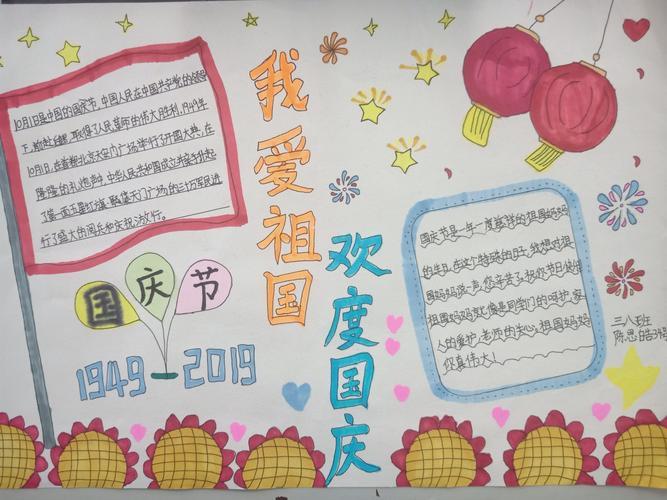 10月1日是中国的国庆节,中国人民在中国共产党的领导
下,前赴后继,取得了人民革命的伟大胜利,1949年
10月1日,在首都北京天安门广场举行了开国大典,在
隆隆的礼炮声中,中华人民共和国成立并亲手升起
了第一面五星红旗,聚集天广场的三十万军民进
行了盛大的阅兵和庆祝游行。
我爱祖国
欢度国庆
国庆节
1949 2019
国庆节是一年一度慈祥的祖国妈妈
的生日,在这个特殊的日子,我想对祖
国妈妈说一声,您辛苦了,祝你节日快乐
祖国妈妈就像是同学们的呵护,家
人的爱护,老师的关心,祖国妈妈
你真伟大!
三八班
陈思皓